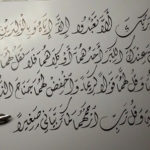 رَبُّكَ أَلَّا تَعْبُدُوا إِلَّا إِيَّاهُ وَبِالْوَالِدَيْنِ
عِنْدَكَ الْكِبَرَ أَحَدُهُمَا أَوْ كِلَاهُمَا فَلَا تَقُلْ لَهُمَا
وَقُلْ لَهُمَا قَوْلًا كَرِيمًا وَاخْفِضْ لَهُمَا جَنَاحَ الذُّلِّ
وَقُلْ رَبِّ ارْحَمْهُمَا كَمَا رَبَّيَانِي صَغِيرًا